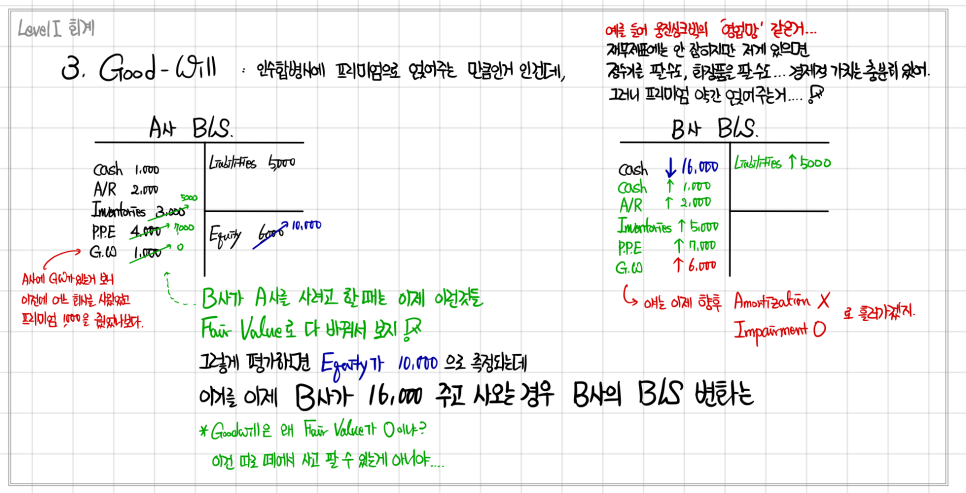 Level I 회계
3. Good-Will : 인수합병시에 프리미엄으로 얹어주는 만큼인거 인건데,
예를 들어 웅진싱크빅의 "영업망" 같은거...
재무제표에는 안 잡히지만 저게 있으면
정수기를 팔수도, 화장품을 팔수도... 경제적 가치는 충분히 있어.
그러니 프리미엄 약간 얹어주는거....
A사 B/S.
Cash 1,000
A/R 2,000
Inventories 3,000 5000
P.P.E 4,000 7,000
G.W 1,000 0
Liabilities 5,000
Equity 6000 10,000
A사에 GW가 있는거 보니
이전에 어느 회사를 사왔었고
프리미엄 1,000을 줬었나보다.
B사가 A사를 사려고 할 때는 이제 이런것들
Fair Value로 다 바꿔서 보지
그렇게 평가하면 Equity가 10,000 으로 측정되는데
이거를 이제 B사가 16,000 주고 사오는 경우 B사의 B/S 변화는
* Goodwill은 왜 Fair Value가 0이냐?
이건 따로 떼어서 사고 팔 수 있는게 아니야....
B사 B/S.
Cash ↓ 16,000
Cash ↑ 1,000
A/R ↑ 2,000
Inventories ↑ 5,000
P.P.E ↑ 7,000
G.W ↑ 6,000
Liabilities ↑ 5000
얘는 이제 향후 Amortization X
Impairment O
로 흘러가겠지.